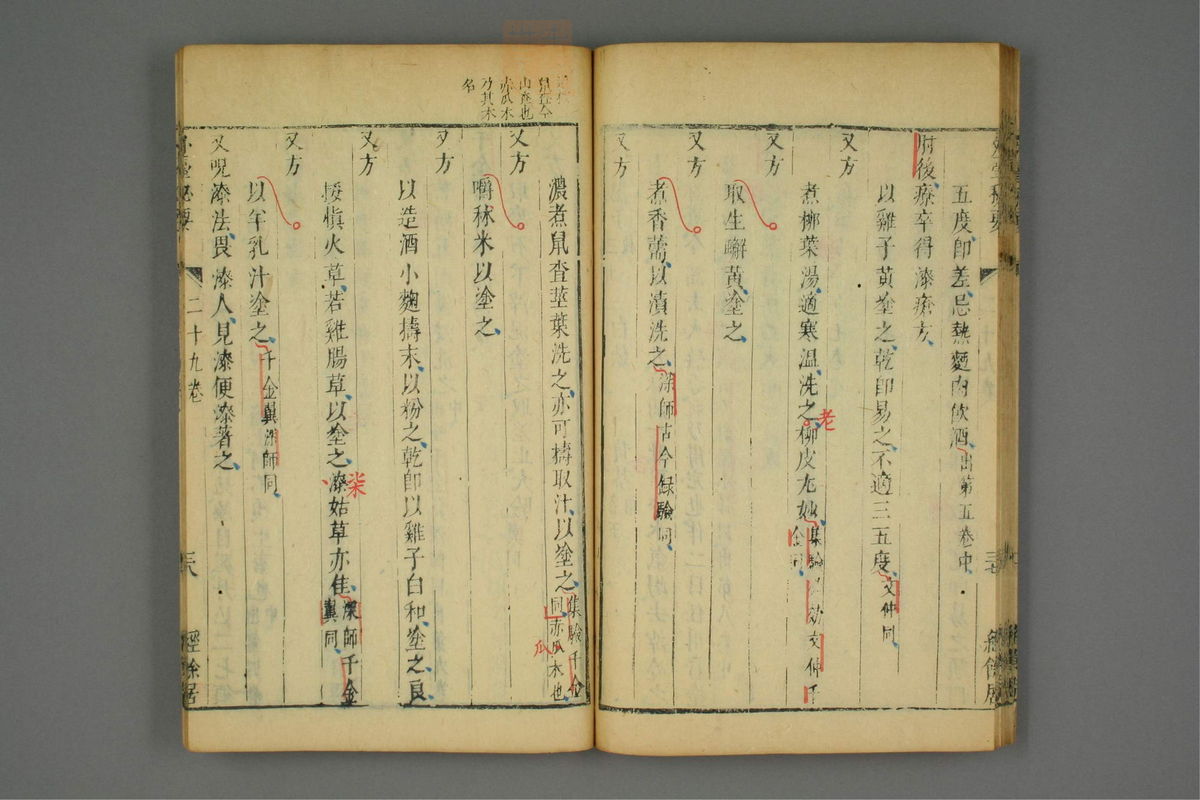 五度即差忌熱麵肉飲酒出第五卷中
肘後療卒得漆瘡方
以雞子黃塗之乾即易之不適三五度文仲同
又方
煮柳葉湯適寒温洗之柳皮尤妙集驗 効文仲千
金同
老
又方
取生蠏黃塗之
又方
煮香薷以漬洗之深師古今録驗同
又方
二十九卷
經餘居
山查也
赤瓜木
乃其木
名
濃煮鼠查莖葉洗之亦可擣取汁以塗之集驗千金
同赤瓜木也
瓜
又方
嚼秫米以塗之
又方
以造酒小麴擣末以粉之乾即以雞子白和塗之良
又方
挼慎火草若雞腸草以塗之漆姑草亦佳深師千金
翼同
柒
又方
以羊乳汁塗之千金翼深師同
又呪漆法畏漆人見漆便漆著之
二十九卷
三八
經餘居